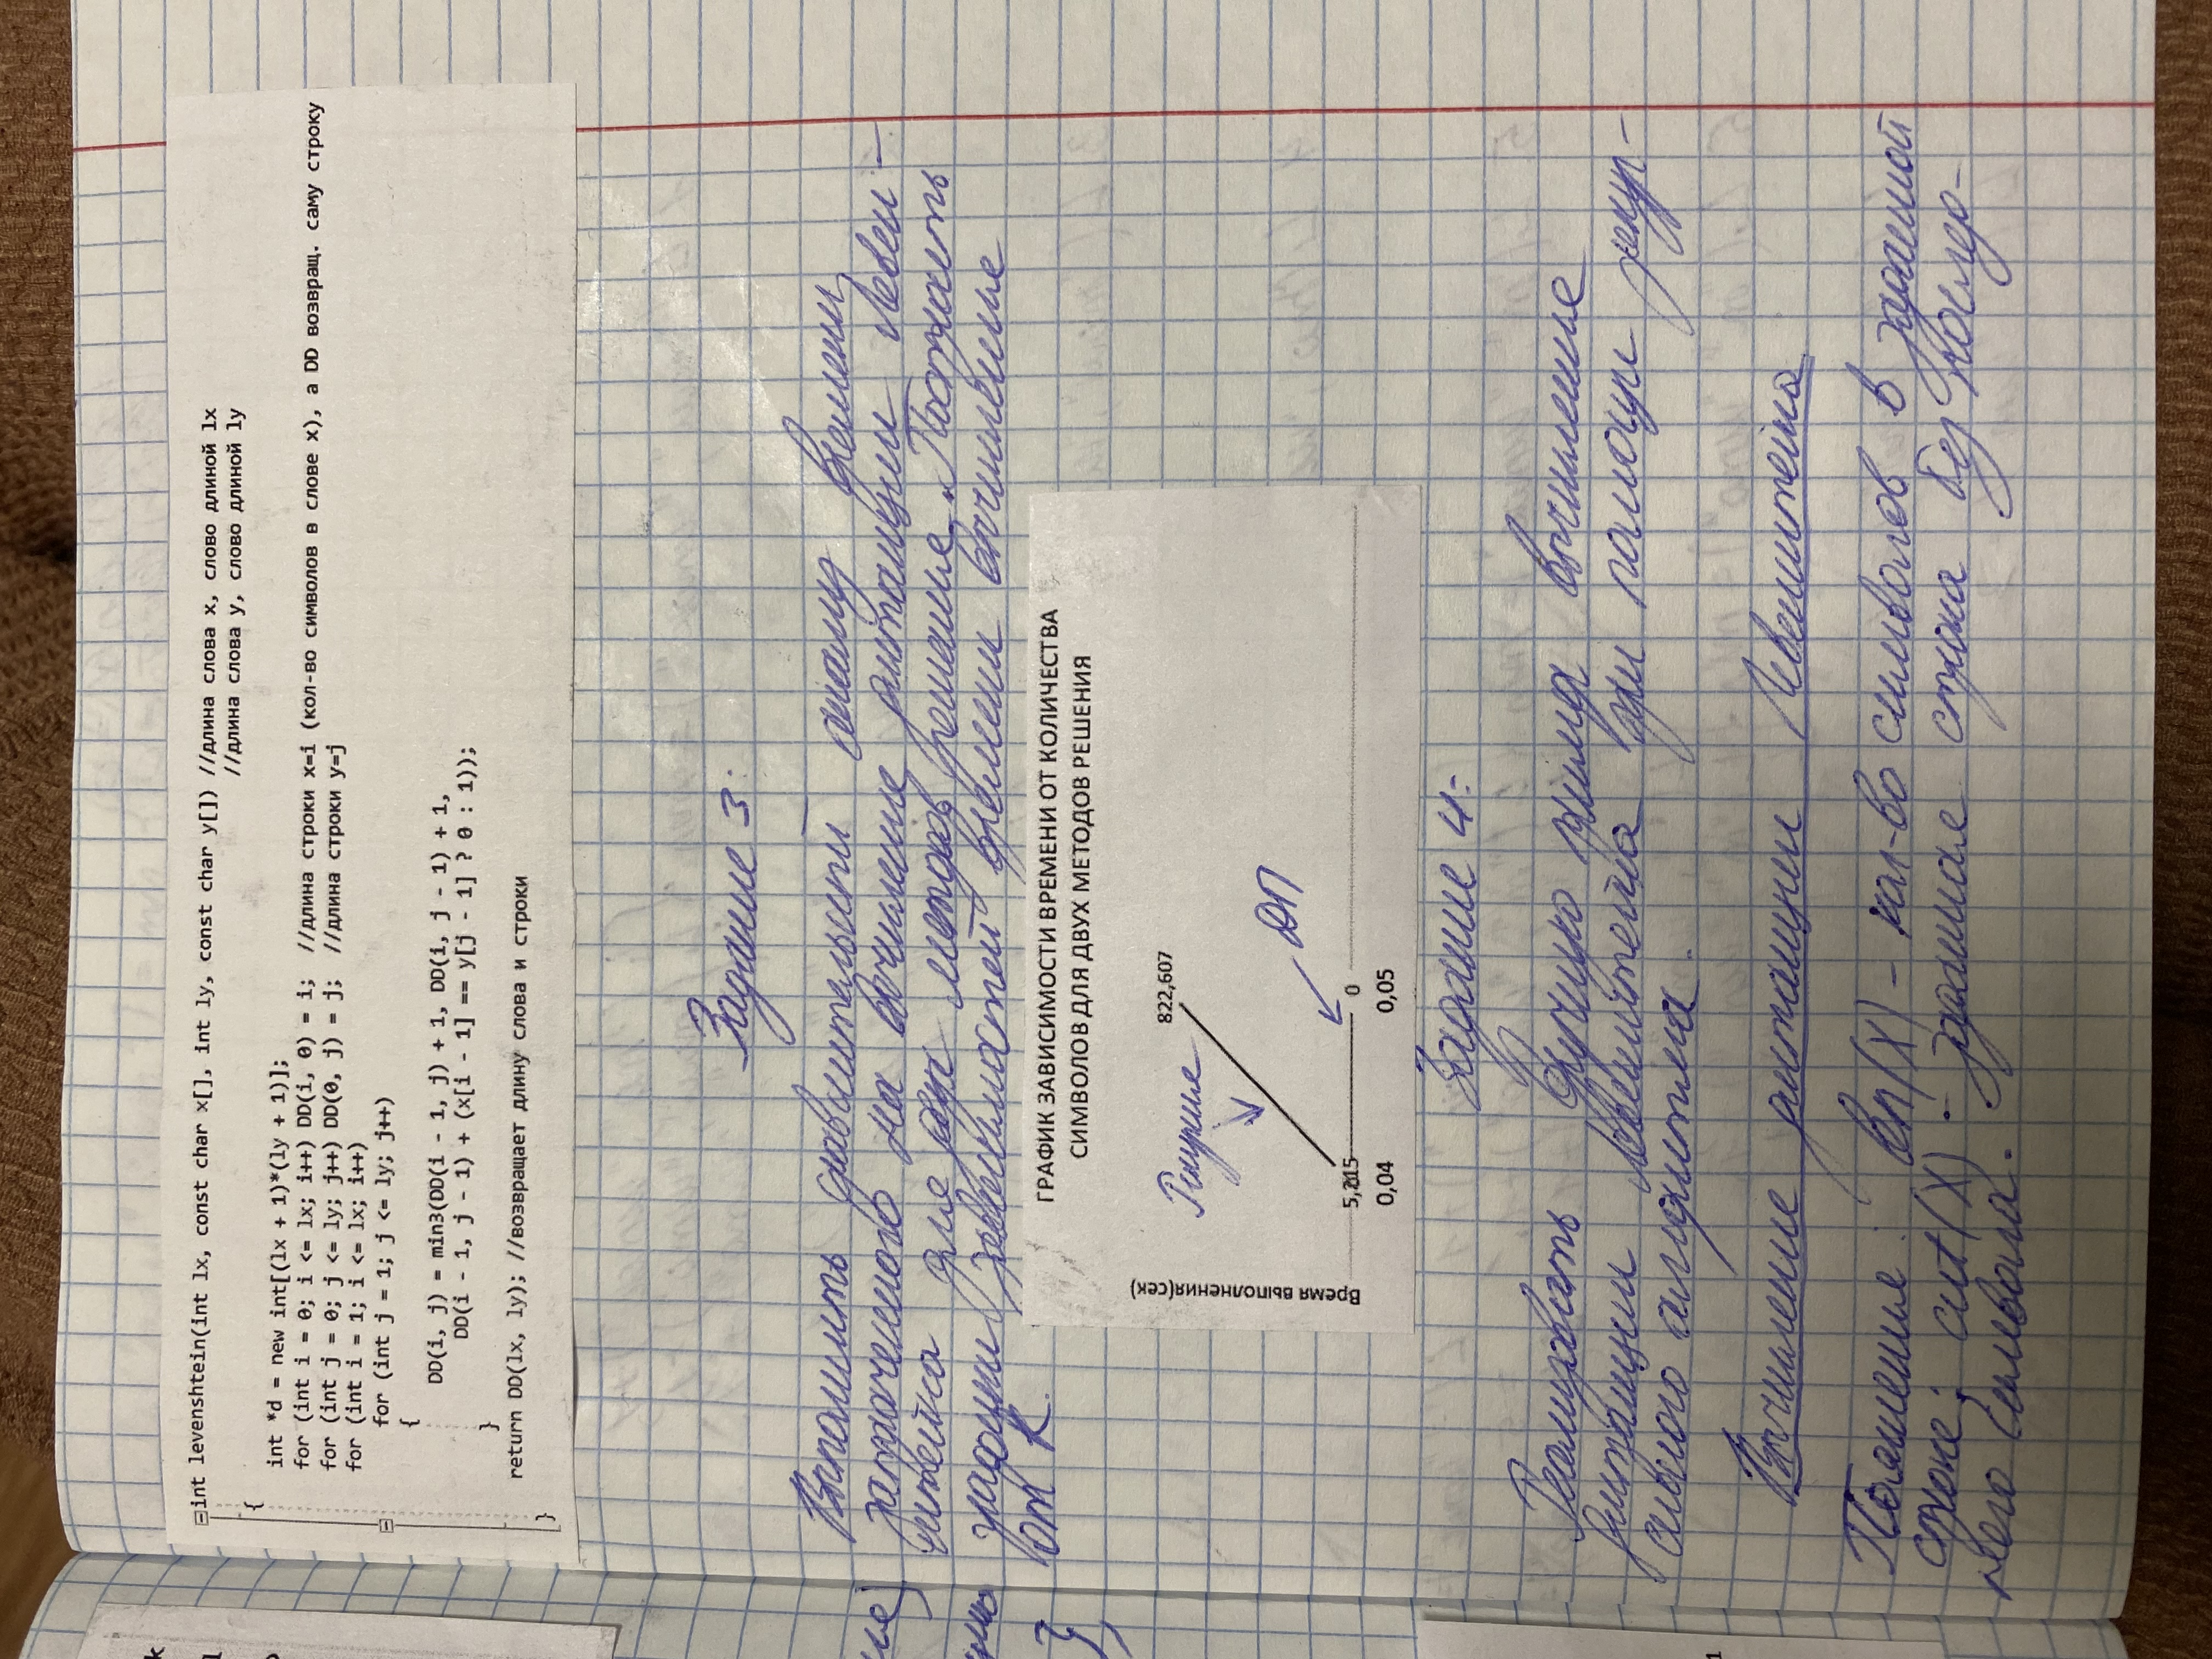 int levenshtein(int lx, const char x[], int ly, const char y[]) //длина слова x, слово длиной lx
//длина слова y, слово длиной ly
{
int *d = new int[(lx + 1)*(ly + 1)];
for (int i = 0; i <= lx; i++) DD(i, 0) = i; //длина строки x=i (кол-во символов в слове x), а DD возвращ. саму строку
for (int j = 0; j <= ly; j++) DD(0, j) = j; //длина строки y=j
for (int i = 1; i <= lx; i++)
for (int j = 1; j <= ly; j++)
{
DD(i, j) = min3(DD(i - 1, j) + 1, DD(i, j - 1) + 1,
DD(i - 1, j - 1) + (x[i - 1] == y[j - 1] ? 0 : 1));
}
return DD(lx, ly); //возвращает длину слова и строки
}
Задание 3:
Выполнить сравнительный анализ времени,
затраченного на вычисление дистанции Левен-
штейна для двух методов решения. Построить
графики зависимостей времени вычисления
от k.
ГРАФИК ЗАВИСИМОСТИ ВРЕМЕНИ ОТ КОЛИЧЕСТВА
СИМВОЛОВ ДЛЯ ДВУХ МЕТОДОВ РЕШЕНИЯ
Время выполнения(сек)
822,607
Рекурсия
ДП
5,215
0
0,04
0,05
Задание 4:
Реализовать вручную пример вычисления
дистанции Левенштейна при помощи рекур-
сивного алгоритма.
Вычисление дистанции Левенштейна
Пояснения: len(X) - кол-во символов в заданной
строке; cut(X) - заданная строка без послед-
него символа.